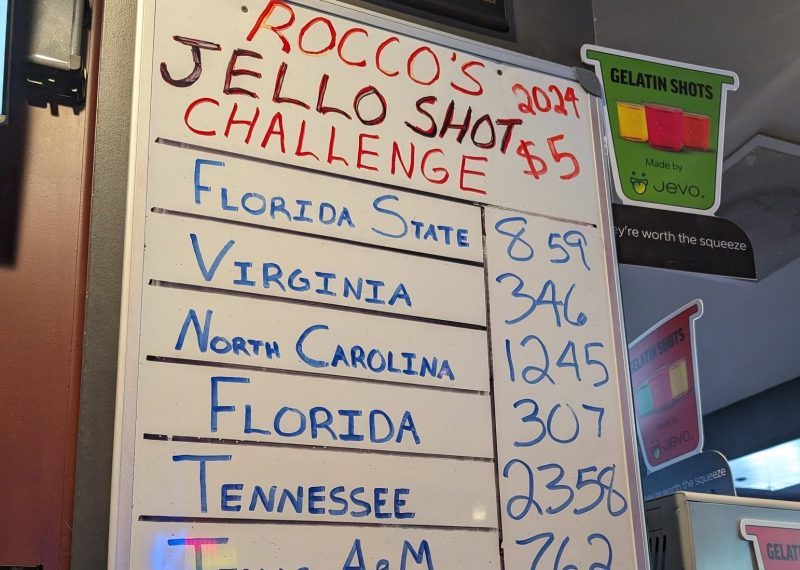 ROCCO'S 2024
JELLO SHOT $5
CHALLENGE
FLORIDA STATE 859
VIRGINIA 346
NORTH CAROLINA 1245
FLORIDA 307
TENNESSEE 2358
A&M 762
GELATIN SHOTS
Made by
Jevo.
y're worth the squeeze
GELATIN SHOTS
Jevo.
worth the squeeze
GELATI